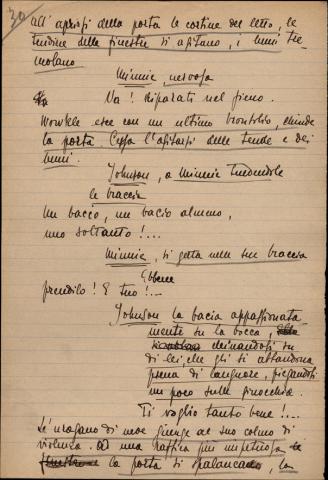 30
all'aprirsi della porta le cortine del letto, le
tendine delle finestre si agitano, i lumi tre
molano
Minnie, nervosa
Va! Riparati nel fieno.
Wowkle esce con un ultimo brontolio, chiude
la porta. Cessa l'agitarsi delle tende e dei
lumi.
Johnson, a Minnie tendendole
le braccia
Un bacio, un bacio almeno,
uno soltanto!...
Minnie, si getta nelle sue braccia
Ebbene
prendilo! È tuo!...
Johnson la bacia appassionata
mente su la bocca,
chinandosi su
di lei, che gli si abbandona
piena di languore, piegandosi
un poco sulle ginocchia.
Ti voglio tanto bene!...
L'uragano di neve giunge al suo colmo di
violenza. Ad una raffica più impetuosa
la porta si spalanca, la